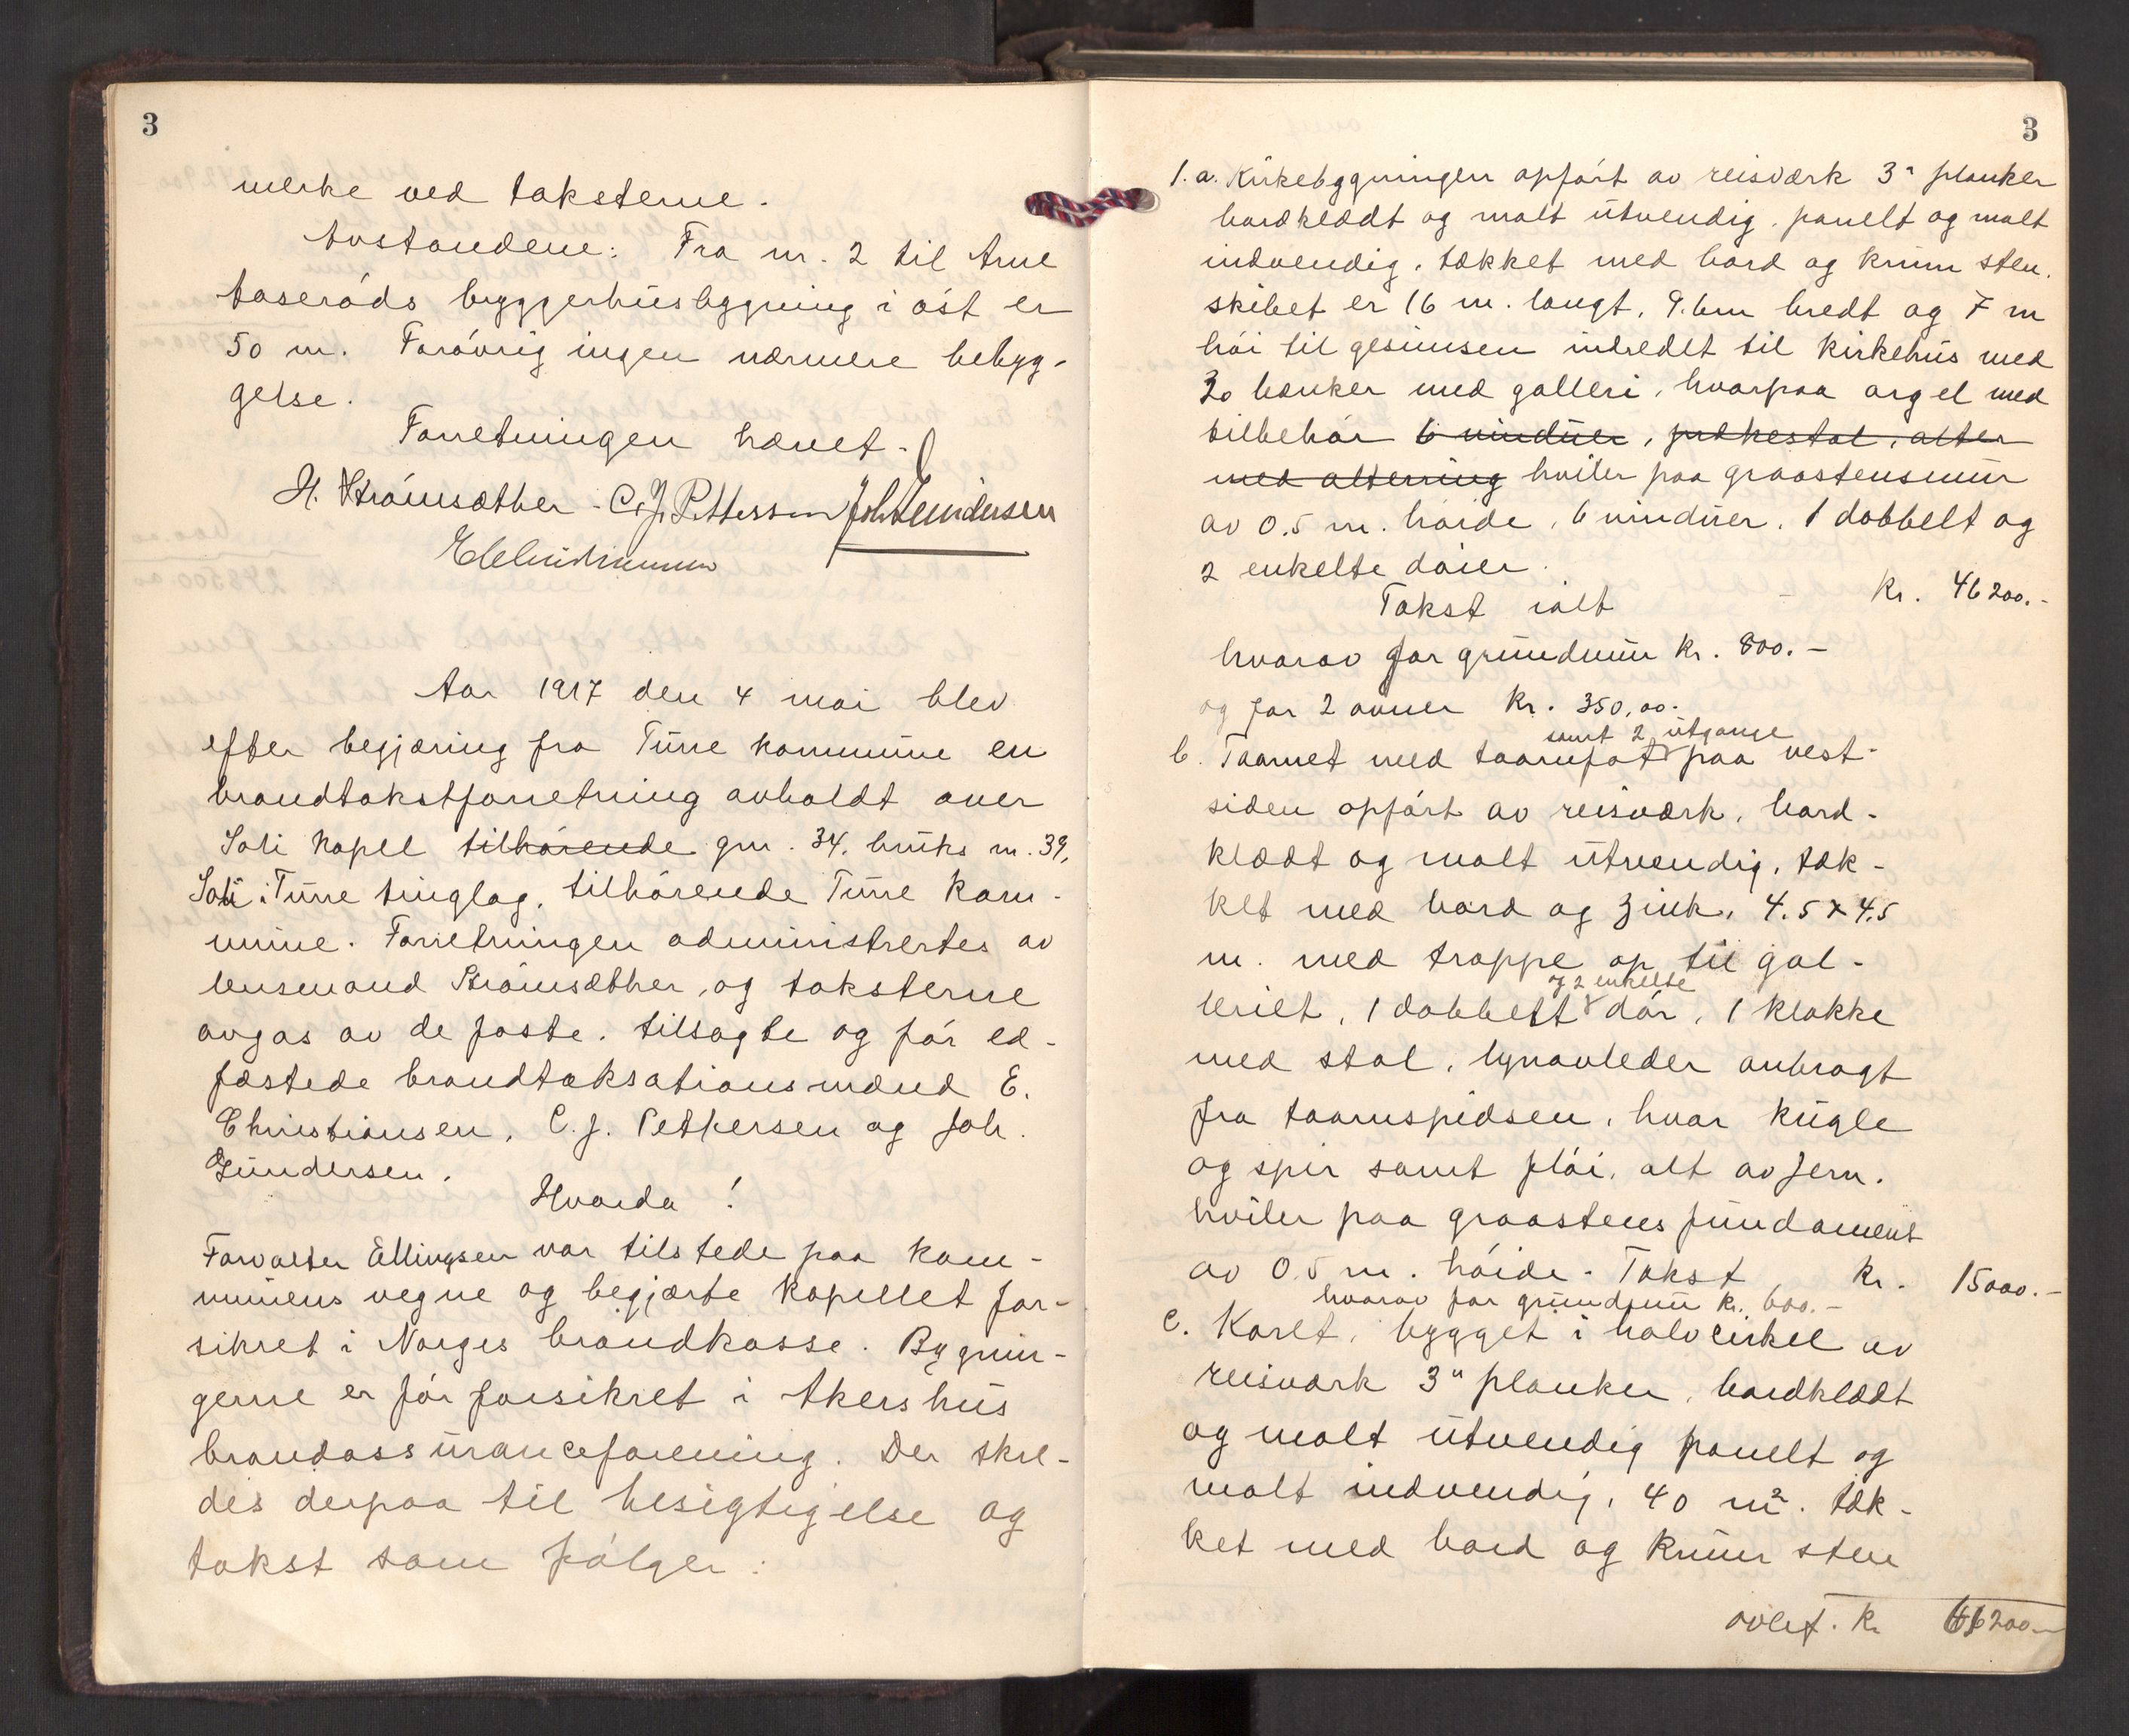 3
merke ved taksterne.
Avstandene: Fra nr. 2 til Arne
Taseröds bryggerhusbygning i öst er
50 m. Forövrig ingen nærmere bebyg-
gelse.
Forretningen hævet.
H. Strömsæther - C. J. Pettersen Joh Gundersen
E Christiansen
Aar 1917 den 4 mai blev
efter begjæring fra Tune kommune en
brandtakstforretning avholdt over
Soli kapel tilhörende gnr. 34, bruks nr. 39,
Soli i Tune tinglag, tilhörende Tune kom-
mune. Forretningen administrertes av
lensmand Strömsæther, og taksterne
avgas av de faste, tilsagte og för ed-
fæstede brandtaksationsmænd E.
Christiansen, C. J. Pettersen og Joh.
Gundersen.
Hvorda!
Forvalter Ellingsen var tilstede paa kom-
munens vegne og begjærte kapellet for-
sikret i Norges brandkasse. Bygnin-
gerne er för forsikret i Akershus
brandassuranceforening. Der skre-
des derpaa til besigtigelse og
takst som fölger:
3
1. a. Kirkebygningen opfört av reisværk 3" planker
bordklædt og malt utvendig, panelt og malt
indvendig, tækket med bord og krum sten.
skibet er 16 m. langt, 9.6m bredt og 7 m
höi til gesimsen indredet til kirkehus med
30 bænker med galleri, hvorpaa orgel med
tilbehör 6 vinduer, prækestol, alter
med alterring hviler paa graastensmur
av 0.5 m. höide, 6 vinduer, 1 dobbelt og
2 enkelte dörer.
Takst ialt - Kr. 46200.-
hvorav for grundmur kr. 800.-
og for 2 ovner Kr. 350,00.
samt 2 utgange
b. Taarnet med taarnfot paa vest-
siden opfört av reisværk, bord-
klædt og malt utvendig, tæk-
ket med bord og zink, 4.5 x 4.5
m. med trappe op til gal-
og 2 enkelte
leriet, 1 dobbelt dör, 1 klokke
med stol, lynavleder anbragt
fra taarnspidsen, hvor kugle
og spir samt flöi, alt av jern.
hviler paa graastens fundament
av 0.5 m. höide. Takst, kr. 15000.-
hvorav for grundmur kr. 600.-
c. Koret, bygget i halvcirkel av
reisværk 3" planker, bordklædt
og malt utvendig panelt og
malt indvendig, 40 m². tæk-
ket med bord og krum sten
overf. kr 61200.-